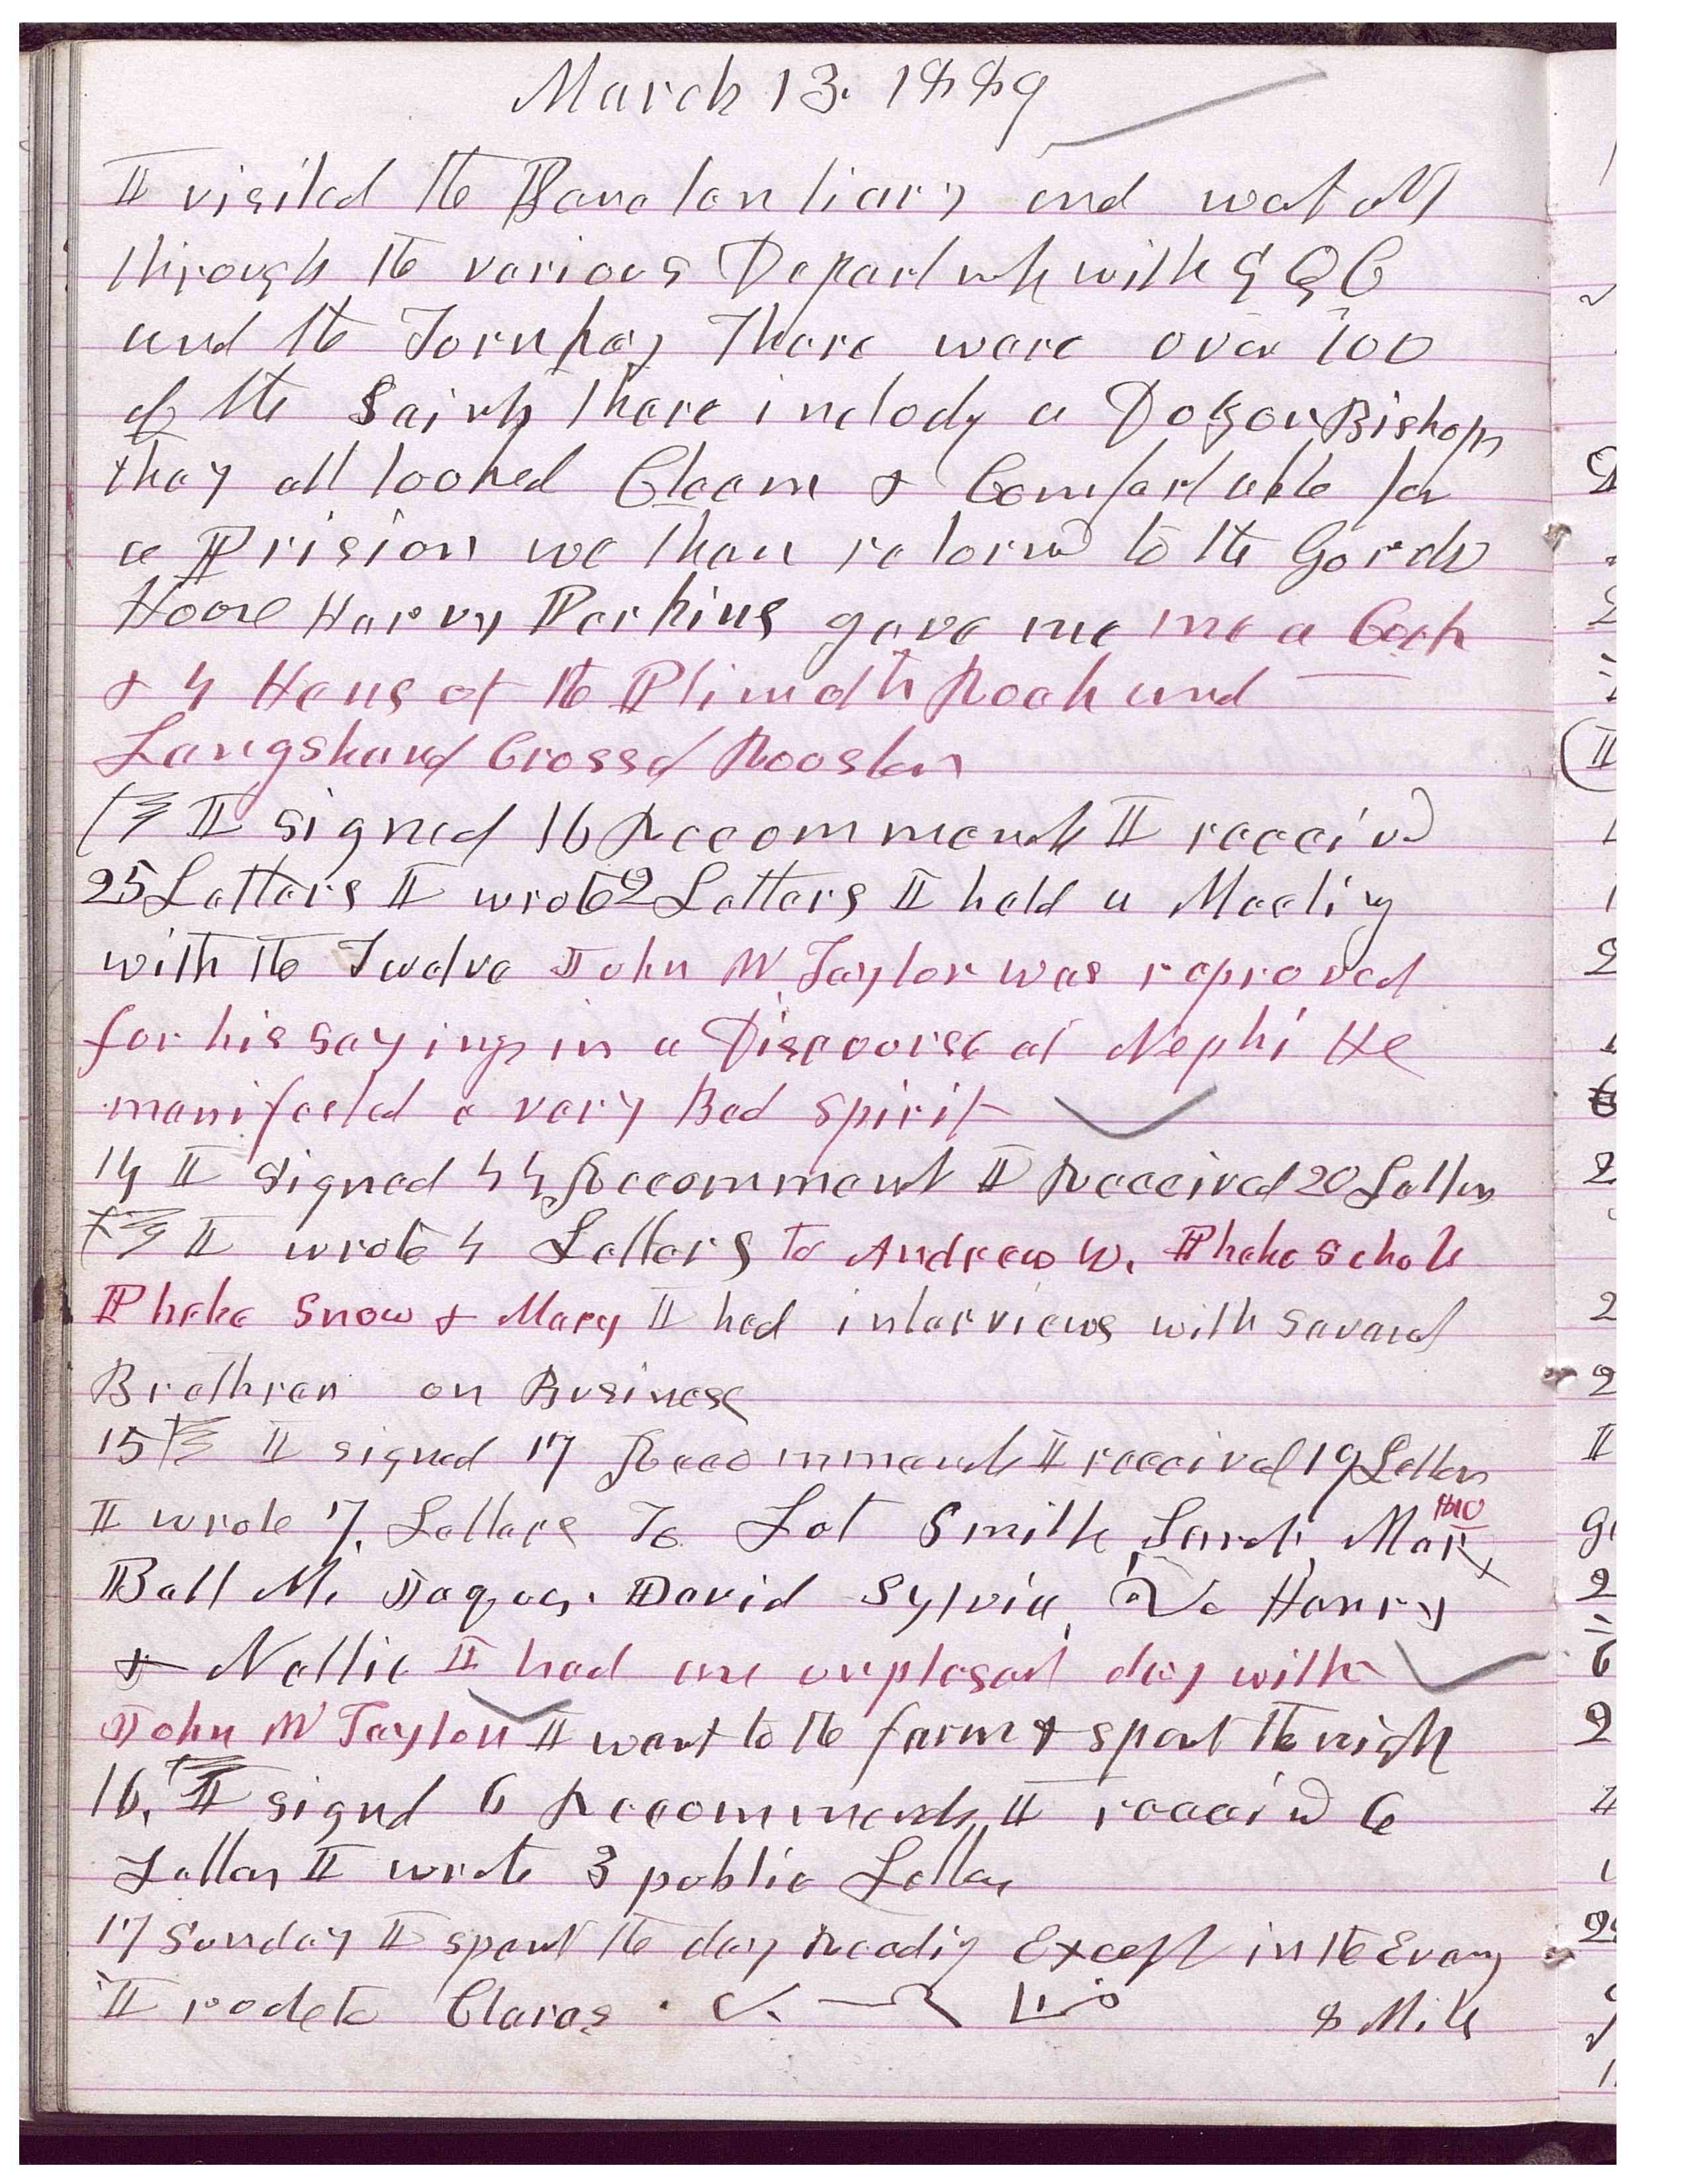 March 13. 1889
I visited the Penetentiary and went all
through the various Departmts with G Q C
and the Turnkey There were over 100
of the Saints there includg a Dozen Bishops
they all looked Clean & Comfortable for
a Prision we then returnd to the Gards
House Harvy Perkins gave me me a Cock
& 4 Hens of the Plimoth Rock and
Langshand Crossd Rooster
I signed 16 Recommends I receivd
25 Letters I wrote 2 Letters I held a Meeting
with the Twelve John W Taylor was reproved
for his sayings in a Discourse at Nephi He
manifested a very Bad spirit
14 I signed 44 Recommend I Received 20 Letters
I wrote 4 Letters To Andrew W. Phebe Schols
Phebe Snow & Mary I had interviews with Severel
Brethren on Business
15 I signed 17 Recommends I received 19 Letters
I wrote 7 Letters To Lot Smith Sarah,
Bell M. Jaques. David Sylvia, Henry
& Nellie I had an unplesant day with
John W Taylor I went to the farm & spent the night
16. I signd 6 Recommends I receivd 6
Letters I wrote 3 public Letters
17 Sunday I spent the day Reading Except in the Eveng
I rode to Claras. 8 Mils